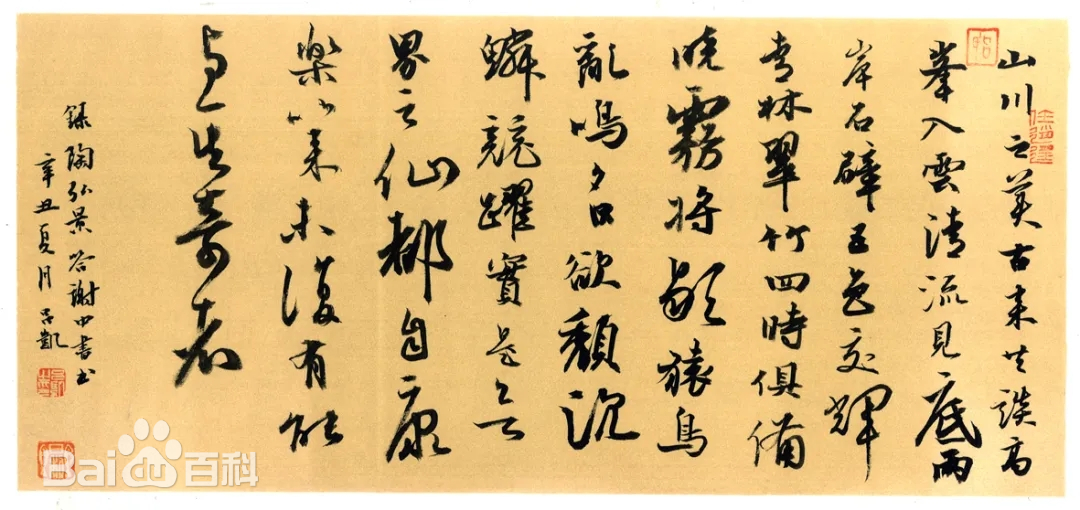 山川之美古来共談高
峯入雲清流見底兩
岸石壁五色交輝
青林翠竹四時俱備
晓霧将歇猿鳥
亂鳴夕日欲頹沉
鱗競躍實是欲
界之仙都自康
樂以来未復有能
与其奇者
録陶弘景答謝中書書
辛丑夏月吕凱
Bai百科